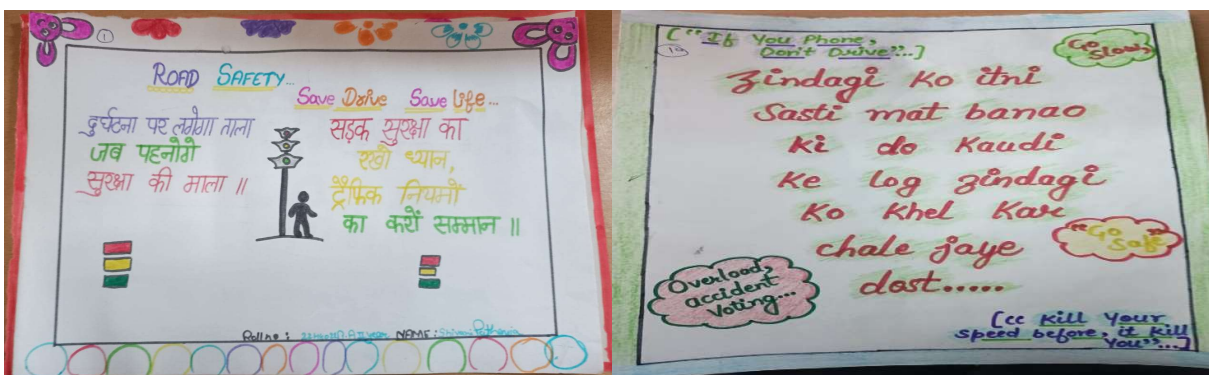 1
ROAD SAFETY...
Save Drive Save life...
दुर्घटना पर लगेगा ताला
जब पहनोगे
सुरक्षा की माला ॥
सड़क सुरक्षा का
रखो ध्यान,
ट्रैफिक नियमों
का करों सम्मान ॥
Roll no : NAME :
["If You Phone,
Don't Drive"...]
Go
Slow,
Zindagi Ko itni
Sasti mat banao
ki do Kaudi
Ke log zindagi
Ko khel Kar
chale jaye
dost.....
"Go
Safe"
Overload,
accident
Voting...
[cc Kill Your
Speed before, it kill
You"...]